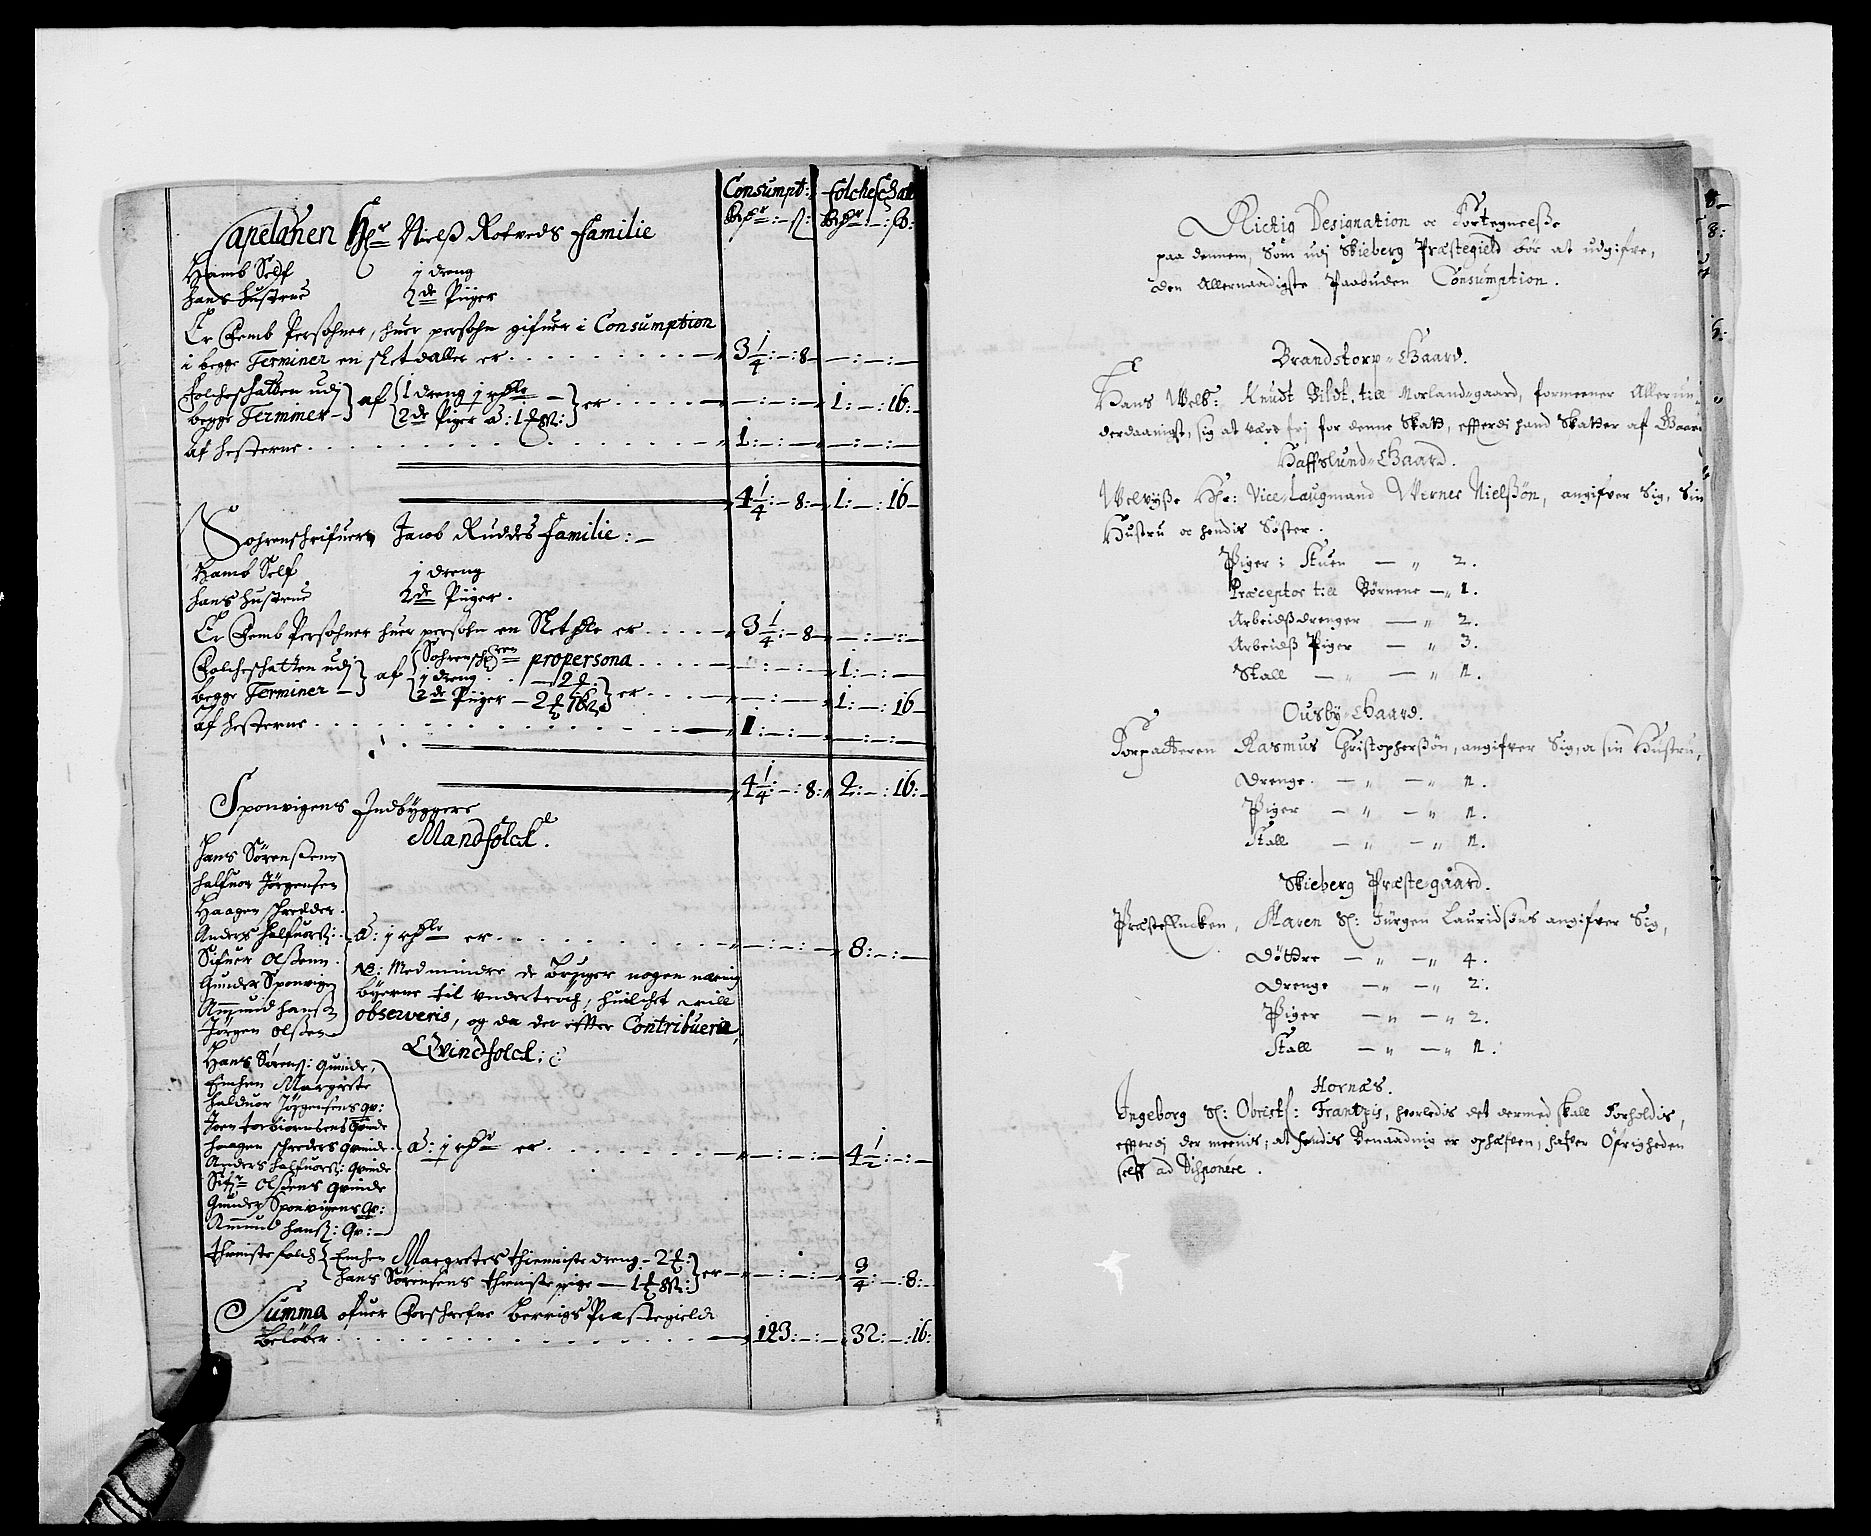 Consumpt: folcheschatt
Rdr: – ß: Rdr: – : ß:
Capelahen Hr Nielß Rotveds familie
Hamb Self 1 dreng
hans hustrue 2de Piiger
Er Femb Persohner, huer persohn gifuer i Consumption
i begge Terminer en slet daller er . . . 3 1/4: – : 8 – : – : –
folcheschatten udj
begge Terminer – af 1 dreng 1 rdlr –
2de Piger à: 1 er . . . – : – : – 1: – : 16:
af hesterne . . . 1: – : – – : – : –
4 1/4: – 8: – 1: – : 16 –
Sohrenschrifuers Jacob Rudds familie: –
Hamb Self 1 dreng
hans hustrue 2de Piiger .
Er Femb Persohner huer persohn en Slet dlr er . . . 3 1/4: – 8 – : – : –
Folcheschatten udj
begge Terminer – af Sohrenschr: propersona . . . – : – : – 1: – : –
1 dreng . . 1 – 2
2de Piiger – 2 er . . . – : – : – 1: – : 16
af hesterne . . . 1: – : – – : – : –
4 1/4: – : 8: 2: – : 16: –
Sponvigens Indbyggere
Mandfolck.
hans Sørenßenn
halfuor Jörgensen
Haagen schredder
Anders halfuorß:
Sifuer Olßenn
Gunder Sponvign
Ammund hanß
Jörgen olßen
à: 1 rdlr er . . . – : – : – 8: – : –
NB: Med mindre de bruger nogen næring
byerne til undertroch, huilchet will
observeris, og da der effter Contribueris,
Qvindfolck:
Hans Sørenß: quinde,
Enchen Margrete
halduor Jörgensens qv:
Joen torbiornsens Quinde
haagen schreders quinde
Anders halfuorß: Quinde
Sifr Olßens quinde
Gunder Sponvigens Qv:
Ammund hanß: Qv: –
à: 1 er . . . – : – : – 4 1/2: – : –
thieniste folch Enchen Margretes thienniste dreng – 2
hans Sørensens thieniste pige – 1 er – – : – : – 3/4: – : 8: –
Summa ofuer Forschrefne berrigs Præstegield
beløber . . . 123: – : – 32: – : 16:
Rictig Designation oc Fortegnelße
paa dennem, Som udj Skieberg Præstegield bör at udgifve,
den Allernaadigste Paabuden Consumption.
Brandstorp-Gaard.
Hans Welb: Knudt Bildt, till Morland-gaard, formeener Allerun-
derdaanigst, sig at være frj for denne Skatt, effterdi hand Skatter af Gaard
Haffslund-Gaard.
Welviße Hr: Vice-Laugmand Werner Nielßön, angifver Sig, Sin
Hustru oc hendis Söster.
Piger i Stuen — „ 2.
Præceptor till Börnene — „ 1.
Arbeidß drenger — „ 2.
Arbeidß Piger — „ 3.
Stall — „ — „ 1.
Ousby-Gaard.
Forpacteren Rasmus Christopherßön, angifver Sig, oc sin Hustru,
Drenge — „ — „ 1.
Piger — „ — „ 1.
Stall — „ — „ 1.
Skieberg Præste-gaard.
PræsteEncken, Karen Sl: Jürgen Lauridsöns angifver Sig,
Döttre — „ — „ 4.
Drenge — „ — „ 2.
Piger — „ — „ 2.
Stall — „ — „ 1.
Hornæs.
Ingeborg Sl: Obristl: Frantzis, hvorledis det dermed skall forholdis,
effterdj der meenis, at hendis Benaadnig er ophæfven, hafver Öfrigheden
self ad Disponere.